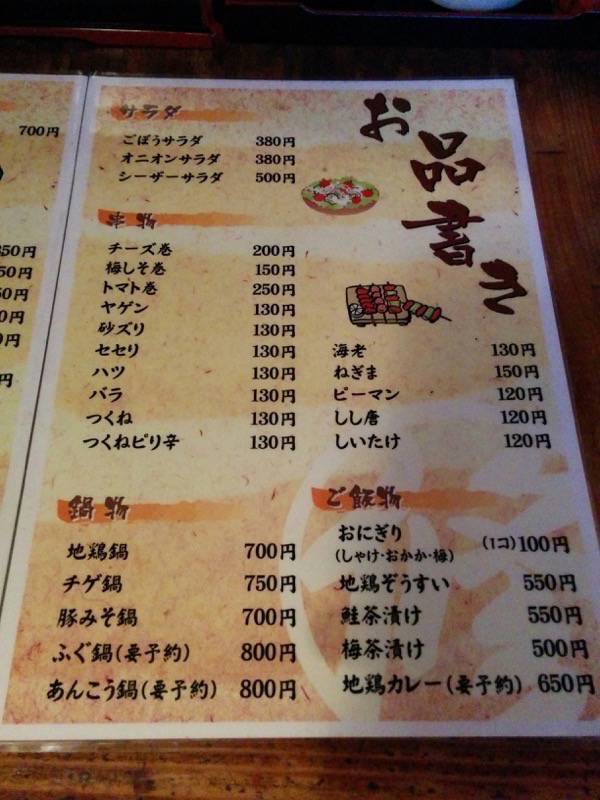 700円
350円
お品書き
サラダ
ごぼうサラダ 380円
オニオンサラダ 380円
シーザーサラダ 500円
串物
チーズ巻 200円
梅しそ巻 150円
トマト巻 250円
ヤゲン 130円
砂ズリ 130円
セセリ 130円
ハツ 130円
バラ 130円
つくね 130円
つくねピリ辛 130円
海老 130円
ねぎま 150円
ピーマン 120円
しし唐 120円
しいたけ 120円
鍋物
地鶏鍋 700円
チゲ鍋 750円
豚みそ鍋 700円
ふぐ鍋(要予約) 800円
あんこう鍋(要予約) 800円
ご飯物
おにぎり (1コ)100円
(しゃけ・おかか・梅)
地鶏ぞうすい 550円
鮭茶漬け 550円
梅茶漬け 500円
地鶏カレー(要予約) 650円